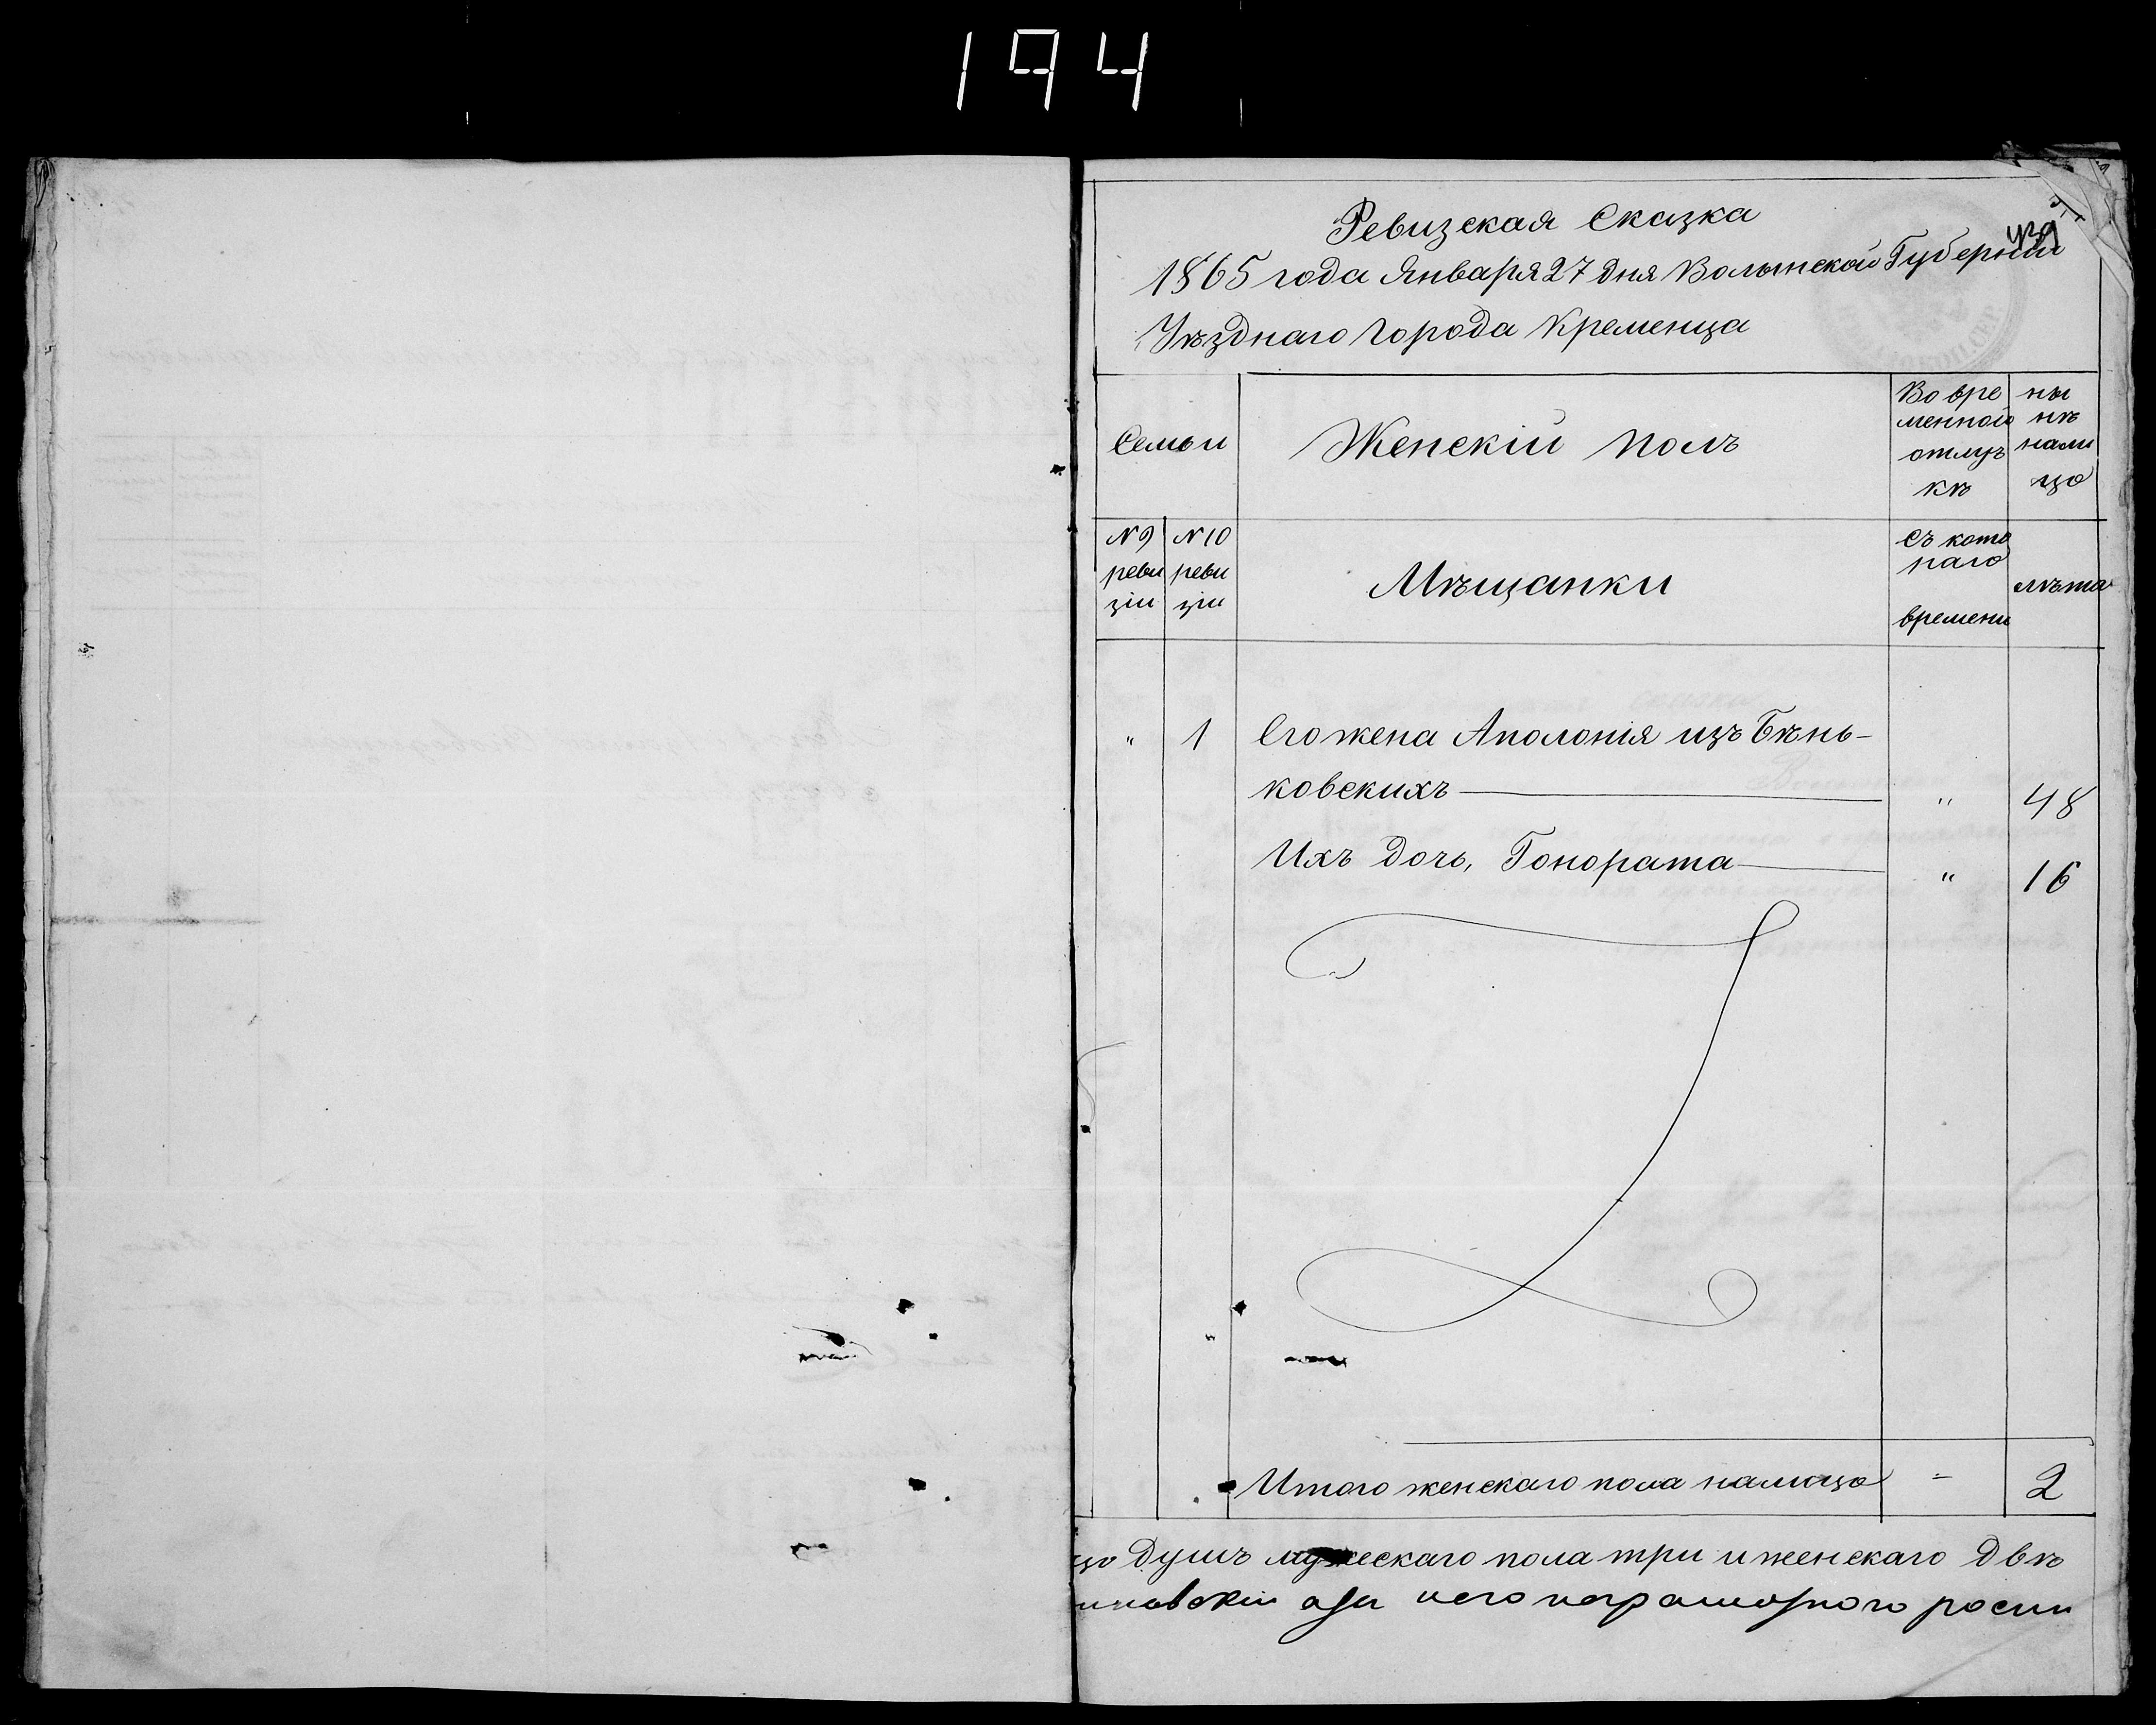 194
Ревизская Сказка
1865 года Января 27 дня Волынской Губерніи
Уѣзднаго Города Кременца
Семьи
Женскій полъ
Во вре
менной
отлуч
кѣ
ны
нѣ
нали
цо
N 9
реви
зіи
N 10
реви
зіи
Мѣщанки
Съ кото
раго
времени
лѣта
" 1 Его жена Аполонія изъ Бѣнь-
ковскихъ " 48
Ихъ дочь, Гонората " 16
Итого женскаго пола налицо = 2
цо душъ мужескаго пола три и женскаго двѣ
новскій а за него неграмотного росии